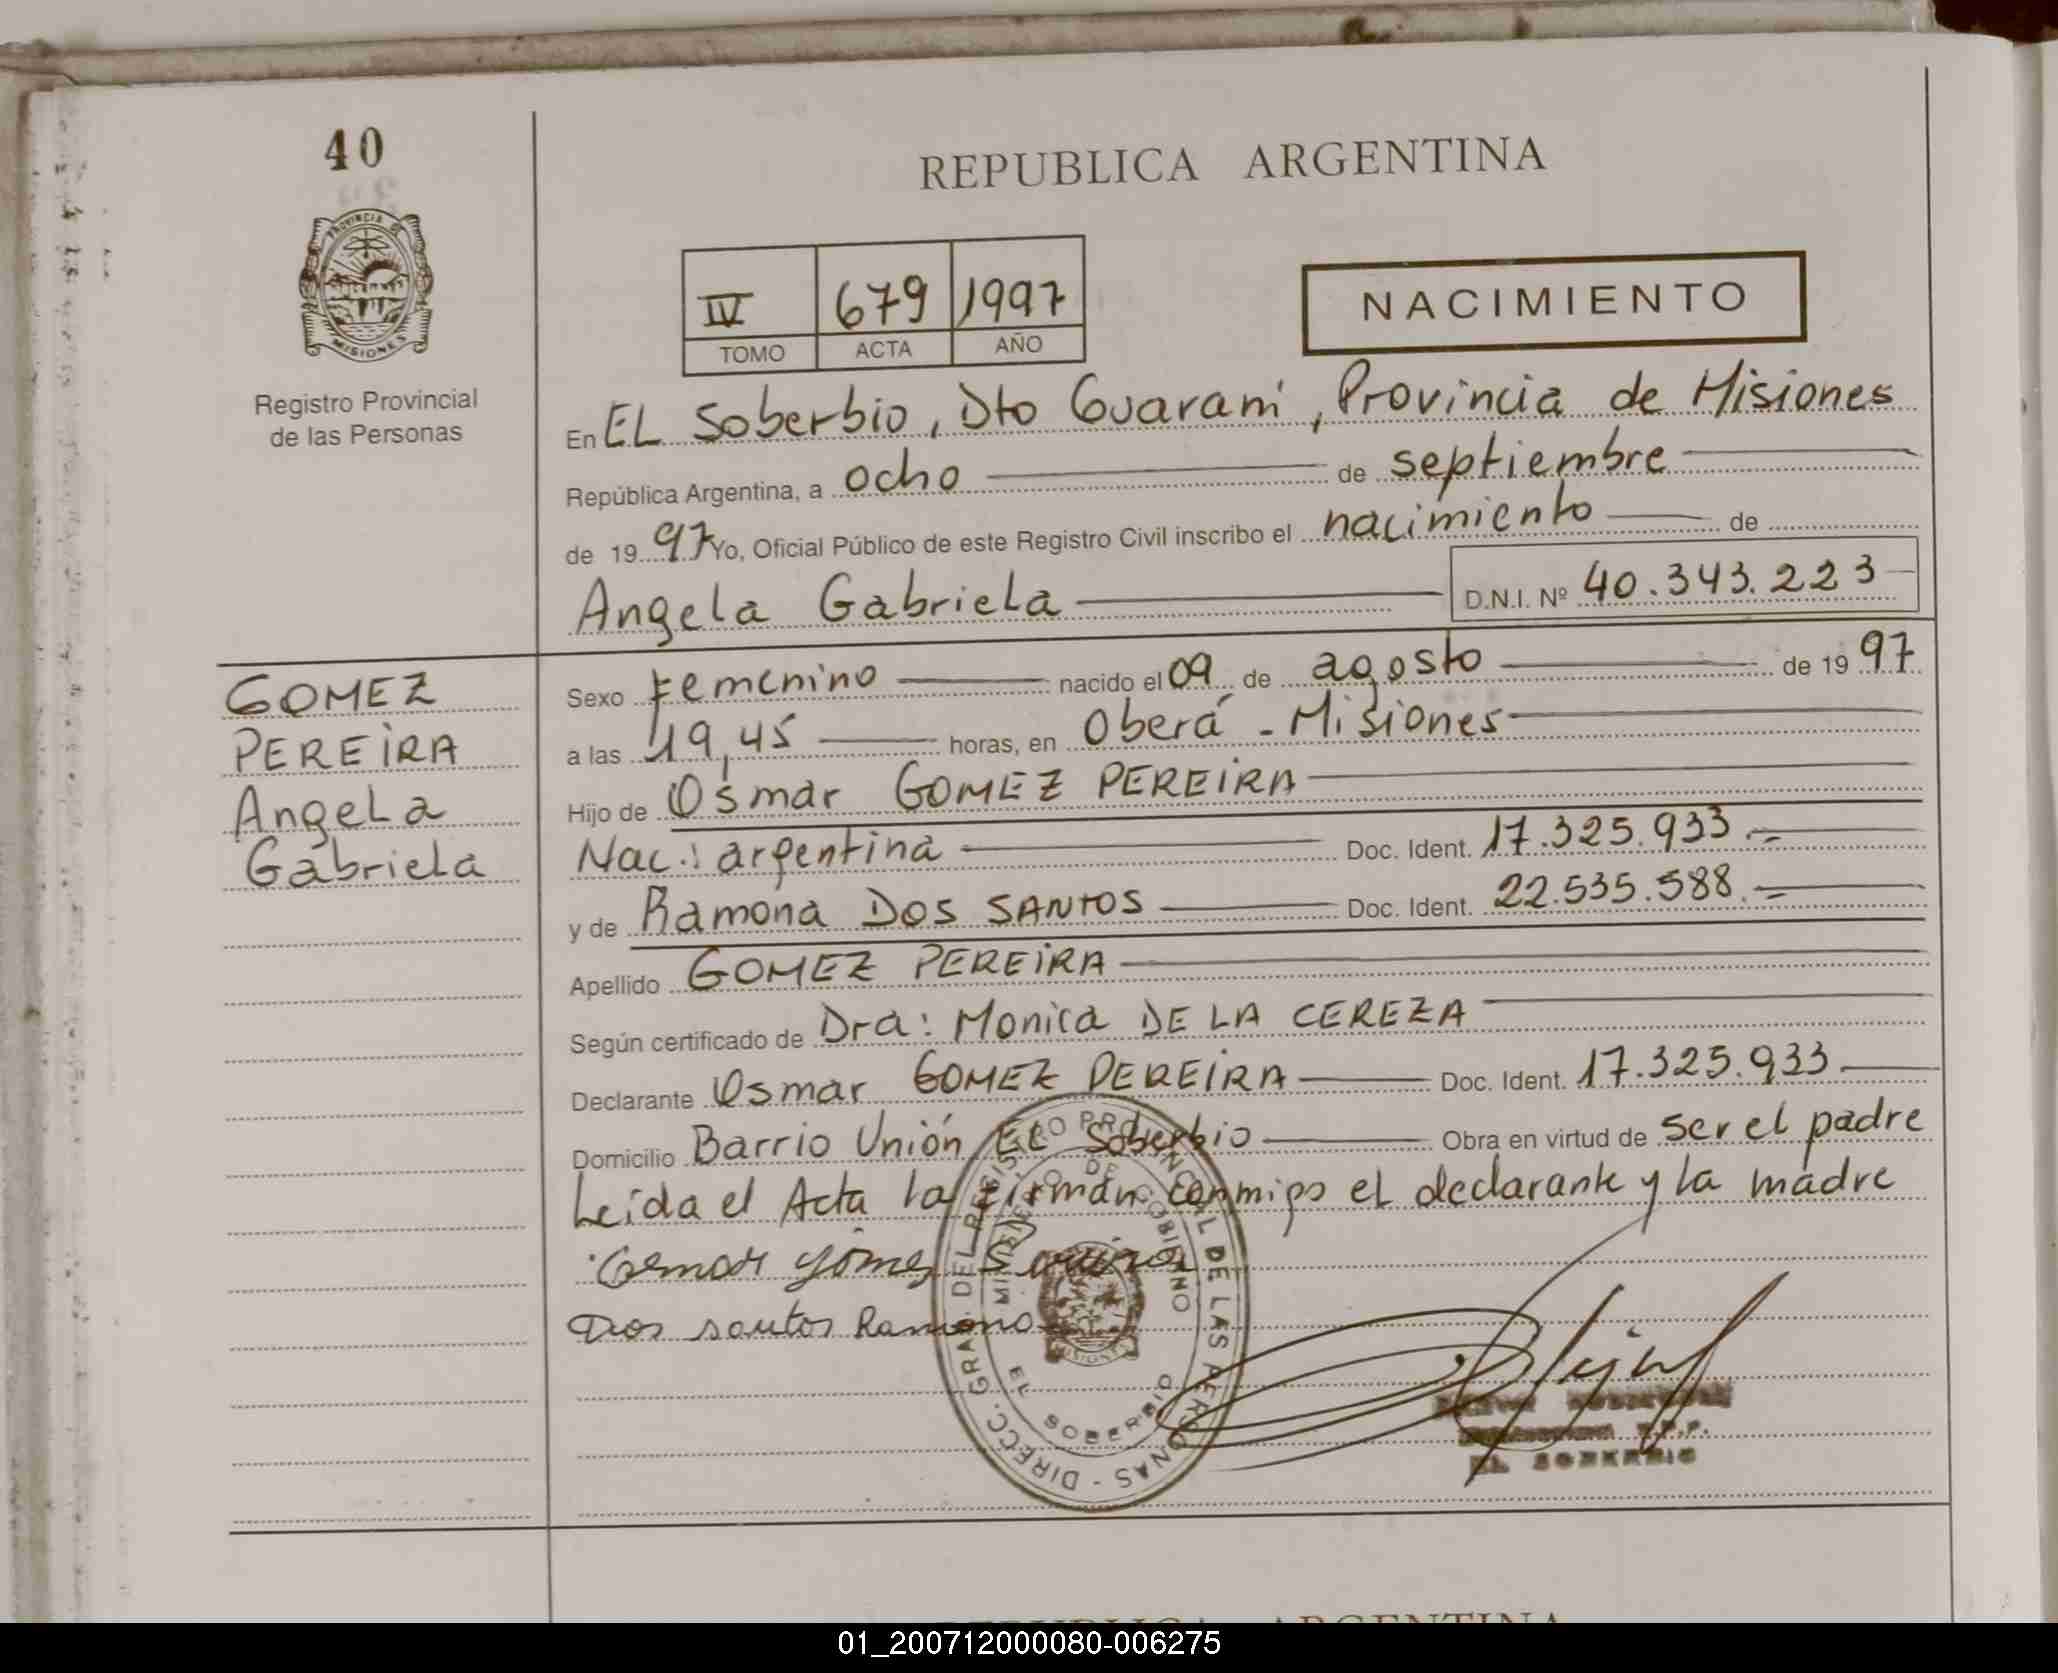 40
REPUBLICA ARGENTINA
PROVINCIA DE
MISIONES
Registro Provincial
de las Personas
IV 679 1997
TOMO ACTA AÑO
NACIMIENTO
En EL Soberbio, Dto Guaraní, Provincia de Misiones
República Argentina, a ocho de septiembre
de 1997 Yo, Oficial Público de este Registro Civil inscribo el nacimiento de
Angela Gabriela D.N.I. Nº 40.343.223
GOMEZ
PEREIRA
Angela
Gabriela
Sexo Femenino nacido el 09 de agosto de 1997
a las 19,45 horas, en Oberá - Misiones
Hijo de Osmar GOMEZ PEREIRA
Nac.: argentina Doc. Ident. 17.325.933.=
y de Ramona DOS SANTOS Doc. Ident. 22.535.588.=
Apellido GOMEZ PEREIRA
Según certificado de Dra: Monica DE LA CEREZA
Declarante Osmar GOMEZ PEREIRA Doc. Ident. 17.325.933.
Domicilio Barrio Unión EL Soberbio Obra en virtud de ser el padre
Leida el Acta la firman conmigo el declarante y la madre
Osmar Gomez Pereira
Dos santos Ramona
DIRECC. GRAL. DEL REGISTRO PROVINCIAL DE LAS PERSONAS
MINISTERIO DE GOBIERNO
MISIONES
EL SOBERBIO
EL SOBERBIO
REPUBLICA ARGENTINA
01_200712000080-006275